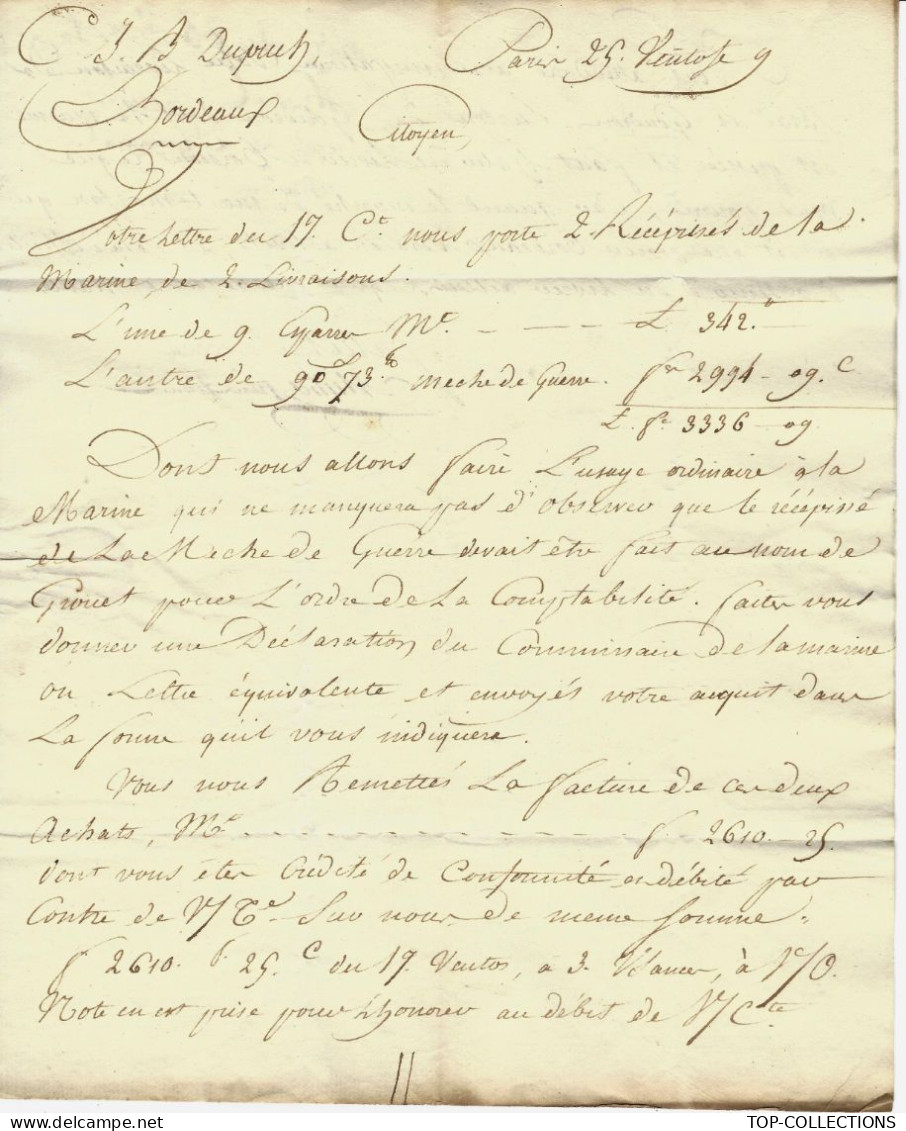 C J B Dupuch Paris 25. Ventose 9
Bordeaux
Citoyen
Votre Lettre du 17. Ct. nous porte 2. Récépissés de la
Marine, de 2. Livraisons.
L'une de 9. Esparres Mt. - - - - £ 342."
L'autre de 90 73. meche de Guerre. fr 2994 - 09. c
£. fr 3336 - 09
Dont nous allons faire L'usage ordinaire à la
Marine qui ne manquera pas d'observer que le récépissé
de La Meche de Guerre devait être fait au nom de
Grouet pour L'ordre de La Comptabilité. faites vous
donner une Déclaration du Commissaire de la marine
ou Lettre équivalente et envoyés votre acquit dans
La forme qu'il vous indiquera.
Vous nous Remettés La facture de ces deux
Achats, Mt - - - - - - - - - - f. 2610 - 25.
dont vous êtes Crédité de Conformité et débité par
Contre de V/Te. Sur nous de meme somme.
f 2610. f. 25. c du 17. Ventose, a 3. Usances, à V/O.
Note en est prise pour L'honorer au débit de V/Cte
TOP-COLLECTIONS